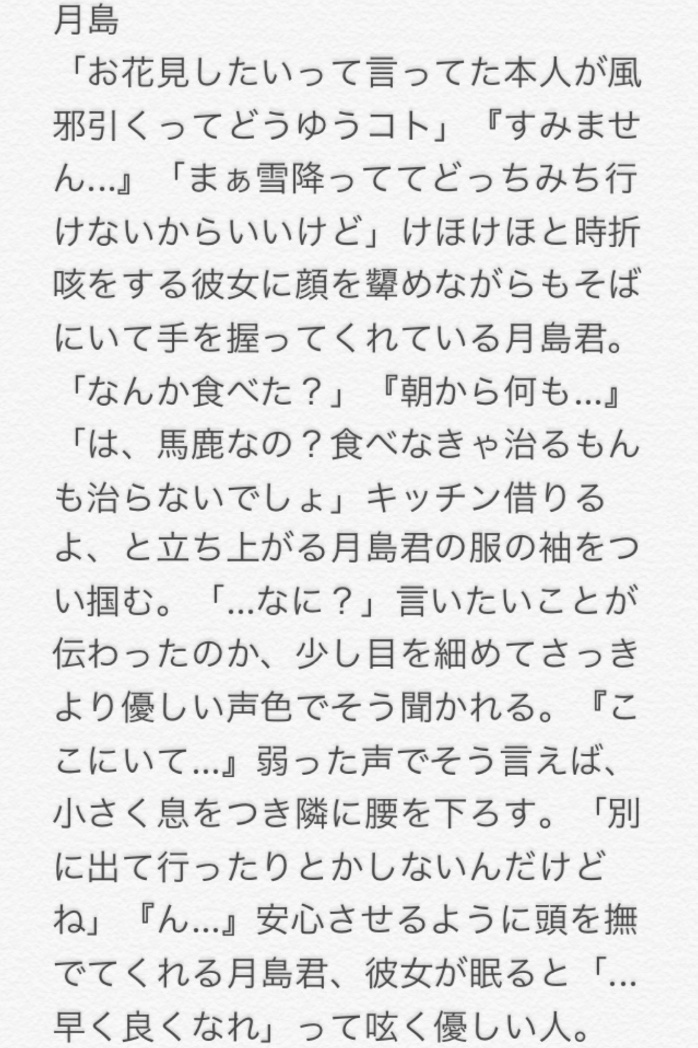 月島
「お花見したいって言ってた本人が風
邪引くってどうゆうコト」『すみませ
ん...』「まぁ雪降っててどっちみち行
けないからいいけど」けほけほと時折
咳をする彼女に顔を顰めながらもそば
にいて手を握ってくれている月島君。
「なんか食べた？」『朝から何も...』
「は、馬鹿なの？食べなきゃ治るもん
も治らないでしょ」キッチン借りる
よ、と立ち上がる月島君の服の袖をつ
い掴む。「...なに？」言いたいことが
伝わったのか、少し目を細めてさっき
より優しい声色でそう聞かれる。『こ
こにいて...』弱った声でそう言えば、
小さく息をつき隣に腰を下ろす。「別
に出て行ったりとかしないんだけど
ね」『ん...』安心させるように頭を撫
でてくれる月島君、彼女が眠ると「...
早く良くなれ」って呟く優しい人。